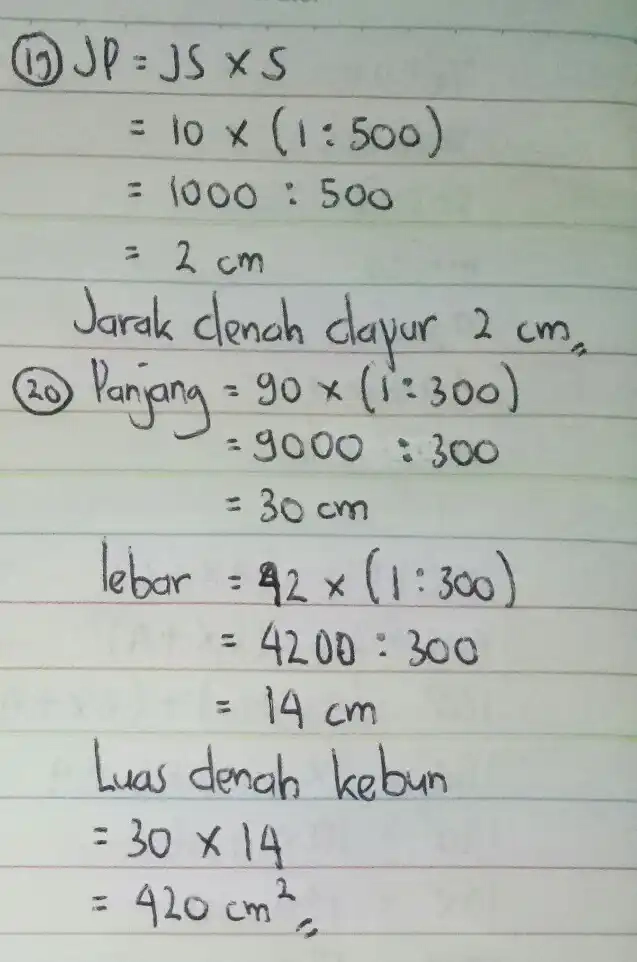 19 JP = JS × S
= 10 × (1 : 500)
= 1000 : 500
= 2 cm
Jarak denah dayur 2 cm
20 Panjang = 90 × (1 : 300)
= 9000 : 300
= 30 cm
lebar = 42 × (1 : 300)
= 4200 : 300
= 14 cm
Luas denah kebun
= 30 × 14
= 420 cm²